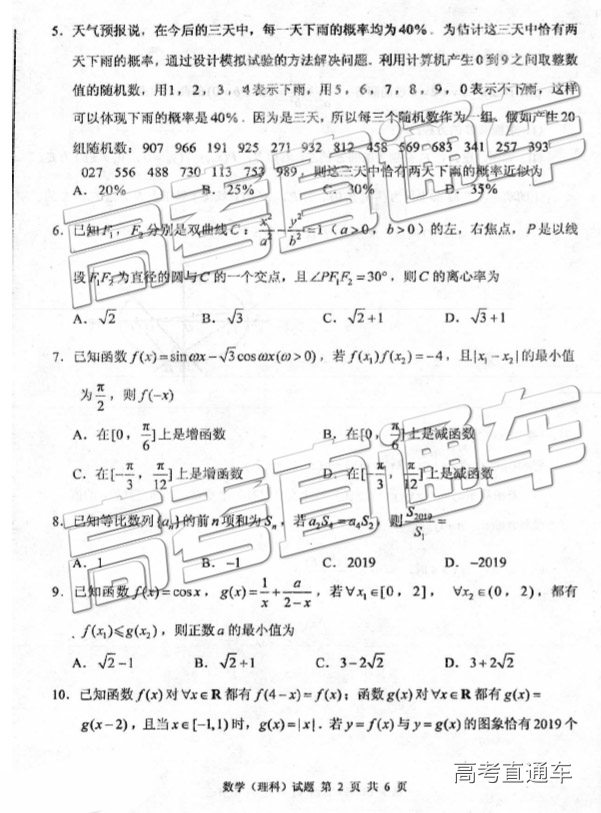 5. 天气预报说，在今后的三天中，每一天下雨的概率均为40%．为估计这三天中恰有两
天下雨的概率，通过设计模拟试验的方法解决问题．利用计算机产生0到9之间取整数
值的随机数，用1，2，3，4表示下雨，用5，6，7，8，9，0表示不下雨，这样
可以体现下雨的概率是40%．因为是三天，所以每三个随机数作为一组、假如产生20
组随机数：907 966 191 925 271 932 812 458 569 683 341 257 393
027 556 488 730 113 753 989，则这三天中恰有两天下雨的概率近似为
A. 20% B. 25% C. 30% D. 35%
6. 已知F₁，F₂分别是双曲线C：x²/a²－y²/b²=1（a>0，b>0）的左，右焦点，P是以线
段F₁F₂为直径的圆与C的一个交点，且∠PF₁F₂=30°，则C的离心率为
A. √2 B. √3 C. √2+1 D. √3+1
7. 已知函数f(x)=sinωx－√3cosωx(ω>0)，若f(x₁)f(x₂)=－4，且|x₁－x₂|的最小值
为π/2，则f(－x)
A. 在[0，π/6]上是增函数 B. 在[0，π/6]上是减函数
C. 在[－π/3，π/12]上是增函数 D. 在[－π/3，π/12]上是减函数
8. 已知等比数列{aₙ}的前n项和为Sₙ，若a₂S₄=a₄S₂，则S₂₀₁₉/S₁=
A. 1 B. －1 C. 2019 D. －2019
9. 已知函数f(x)=cosx，g(x)=1/x+a/(2－x)，若∀x₁∈[0，2]，∀x₂∈(0，2)，都有
f(x₁)≤g(x₂)，则正数a的最小值为
A. √2－1 B. √2+1 C. 3－2√2 D. 3+2√2
10. 已知函数f(x)对∀x∈R都有f(4－x)=f(x)；函数g(x)对∀x∈R都有g(x)=
g(x－2)，且当x∈[－1,1)时，g(x)=|x|．若y=f(x)与y=g(x)的图象恰有2019个
数学（理科）试题 第 2 页 共 6 页
高考直通车
高考直通车
高考直通车
高考直通车